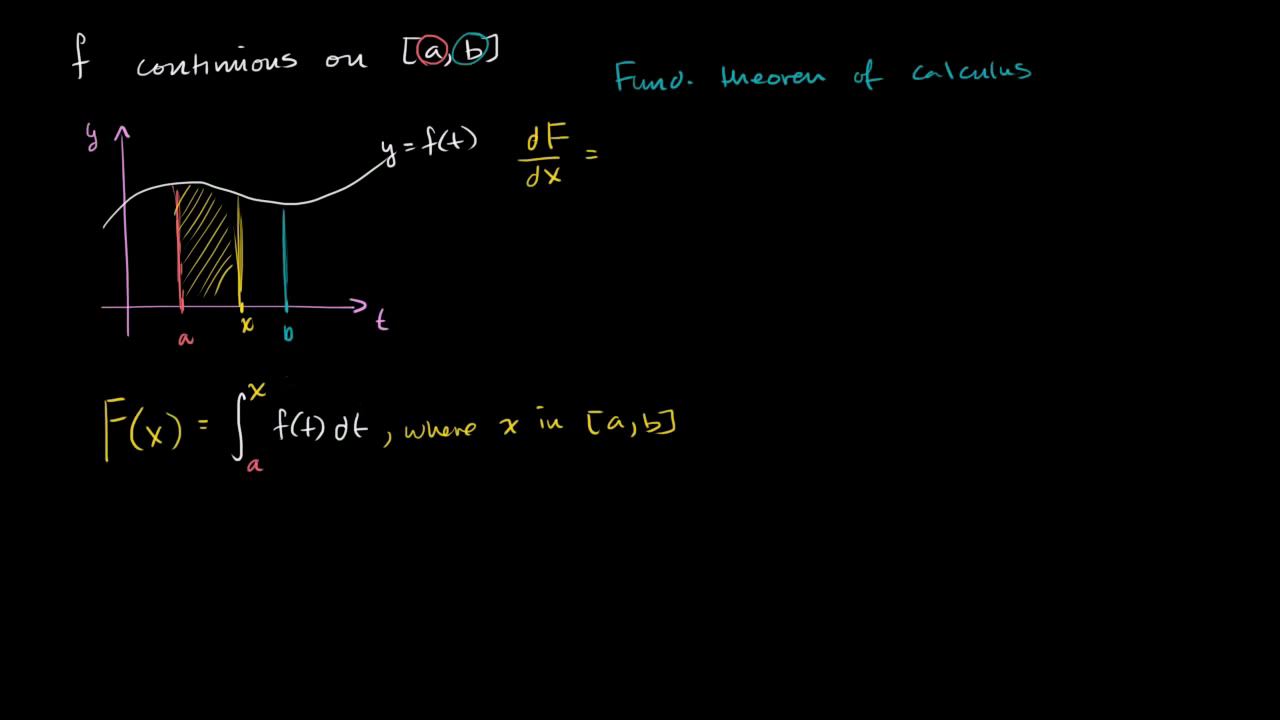 f continuous on [a, b]
Fund. theorem of calculus
y
y = f(t)
dF/dx =
a
x
b
t
F(x) = ∫ₐˣ f(t) dt, where x in [a, b]